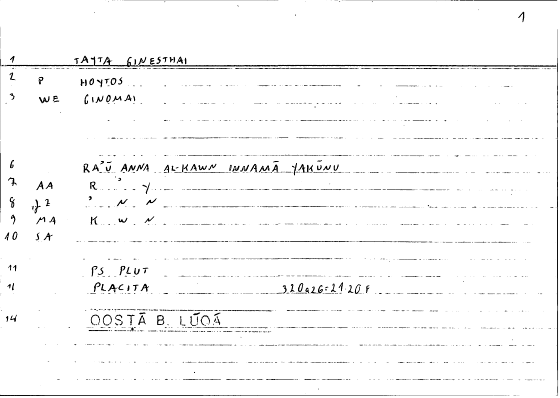 1
1 TAYTA GINESTHAI
2 P HOYTOS
3 WE GINOMAI
6 RA'Ū ANNA AL-KAWN INNAMĀ YAKŪNU
7 AA R ' Y
8 JZ ' N N
9 MA K W N
10 SA
11 PS PLUT
11 PLACITA 320a26=21.20 F
14 QOSṬĀ B. LŪQĀ